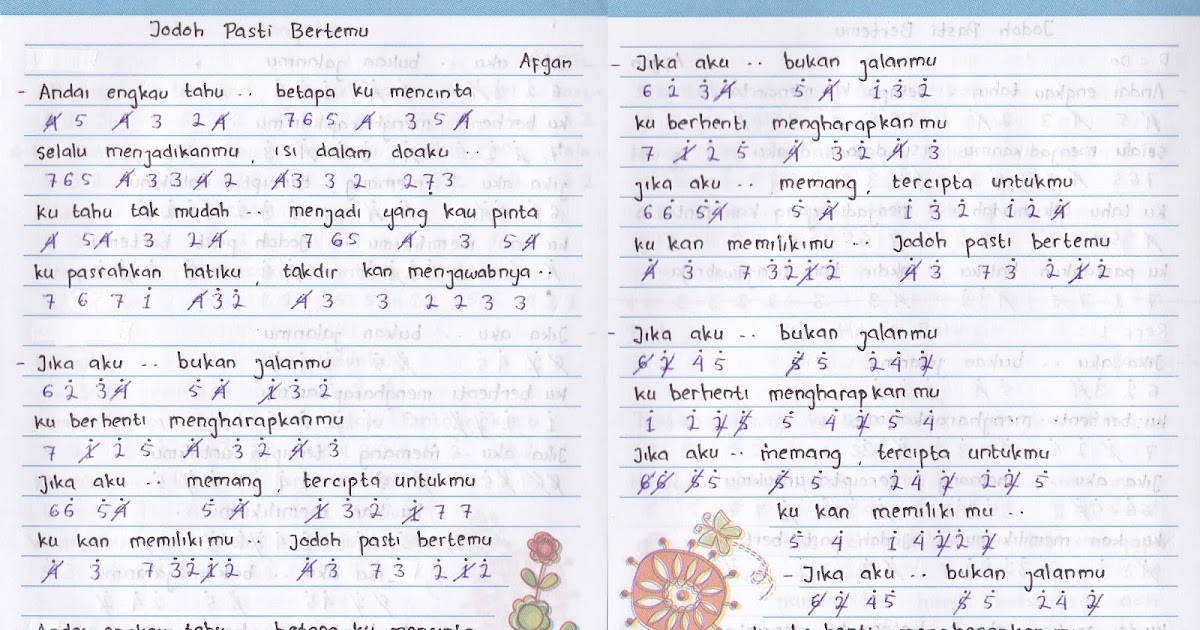 Jodoh Pasti Bertemu
Afgan
- Andai engkau tahu .. betapa ku mencinta
4 5 4 3 2 4 7 6 5 4 3 5 4
selalu menjadikanmu, isi dalam doaku ..
7 6 5 4 3 3 4 2 4 3 3 2 2 7 3
ku tahu tak mudah .. menjadi yang kau pinta
4 5 4 3 2 4 7 6 5 4 3 5 4
ku pasrahkan hatiku, takdir kan menjawabnya ..
7 6 7 1 4 3 2 4 3 3 2 2 3 3
- Jika aku .. bukan jalanmu
6 2 3 4 5 4 1 3 2
ku berhenti mengharapkanmu
7 1 2 5 4 3 2 4 3
Jika aku .. memang, tercipta untukmu
6 6 5 4 5 4 1 3 2 1 7 7
ku kan memilikimu Jodoh pasti bertemu
4 3 7 3 2 1 2 4 3 7 3 2 1 2
Andai engkau tahu .. betapa ku mencinta
- Jika aku .. bukan jalanmu
6 2 3 4 5 4 1 3 2
ku berhenti mengharapkanmu
7 1 2 5 4 3 2 4 3
jika aku .. memang, tercipta untukmu
6 6 5 4 5 4 1 3 2 1 2 4
ku kan memilikimu .. Jodoh pasti bertemu
4 3 7 3 2 1 2 4 3 7 3 2 1 2
- Jika aku .. bukan jalanmu
6 2 4 5 5 5 2 4 2
ku berhenti mengharapkanmu
1 2 2 5 5 4 2 5 4
Jika aku .. memang, tercipta untukmu
6 6 5 5 5 5 2 4 2 2 2 5
ku kan memilikimu ..
5 4 1 4 2 2 2
- Jika aku .. bukan jalanmu
6 2 4 5 5 5 2 4 2